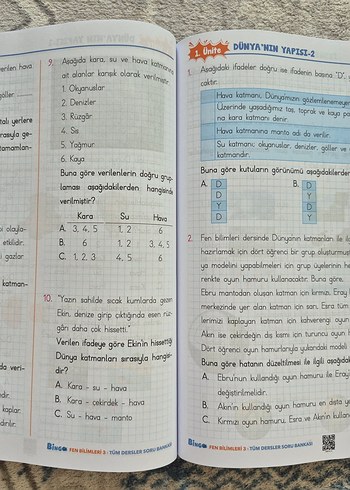 erilen hava
göller
talı yerlere
rasıyla ge-
tamamlan-
bi olayla-
etkilidir.
i gazlar
katman-
da veri-
dir.
kaplar.
dirilir.
9. Aşağıda kara, su ve hava katmanına
ait alanlar karışık olarak verilmiştir.
1. Okyanuslar
2. Denizler
3. Rüzgâr
4. Sis
5. Yağmur
6. Kaya
Buna göre verilenlerin doğru grup-
laması aşağıdakilerden hangisinde
verilmiştir?
Kara Su Hava
A. 3, 4, 5 1, 2 6
B. 6 1, 2 3, 4, 5
C. 1, 2, 3 4, 5 6
10. "Yazın sahilde sıcak kumlarda gezen
Ekin, denize girip çıktığında esen rüz-
gârı daha çok hissetti."
Verilen ifadeye göre Ekin'in hissettiği
Dünya katmanları sırasıyla hangisi-
dir?
A. Kara - su - hava
B. Kara - çekirdek - hava
C. Su - hava - manto
BinGo FEN BİLİMLERİ 3 - TÜM DERSLER SORU BANKASI
1. Ünite DÜNYA'NIN YAPISI-2
1. Aşağıdaki ifadeler doğru ise ifadenin başına "D",
caktır.
Hava katmanı, Dünyamızın gözlemlenemeyen
Üzerinde yaşadığımız taş, toprak ve kaya pa
na kara katmanı denir.
Hava katmanına manto adı da verilir.
Su katmanı; okyanuslar, denizler, göller ve
katmandır.
Buna göre kutuların görünümü aşağıdakilerden
A. D B. D
D Y
Y D
D Y
2. Fen bilimleri dersinde Dünya'nın katmanları ile ilg
hazırlamak için dört öğrenci bir grup oluşturmuşt
ya modelini yapabilmeleri için grup üyelerinin he
renkte oyun hamuru kullanacaktır. Buna göre,
Ebru mantodan oluşan katman için kırmızı, Eray
merkezinde yer alan katman için sarı, Esra tüm
lerimizi kaplayan katman için kahverengi oyun
Akın ise çekirdeğin dış kısmı için turuncu oyun
Dört öğrenci oyun hamurlarıyla yukarıdaki modeli
Buna göre hatanın düzeltilmesi ile ilgili aşağıdak
A. Ebru'nun kullandığı oyun hamuru ile Eray'
değiştirilmelidir.
B. Akın'ın kullandığı oyun hamuru en dışta y
C. Kırmızı oyun hamuru, Esra ve Akın'ın kullan
BinGo FEN BİLİMLERİ 3 - TÜM DERSLER SORU BANKASI